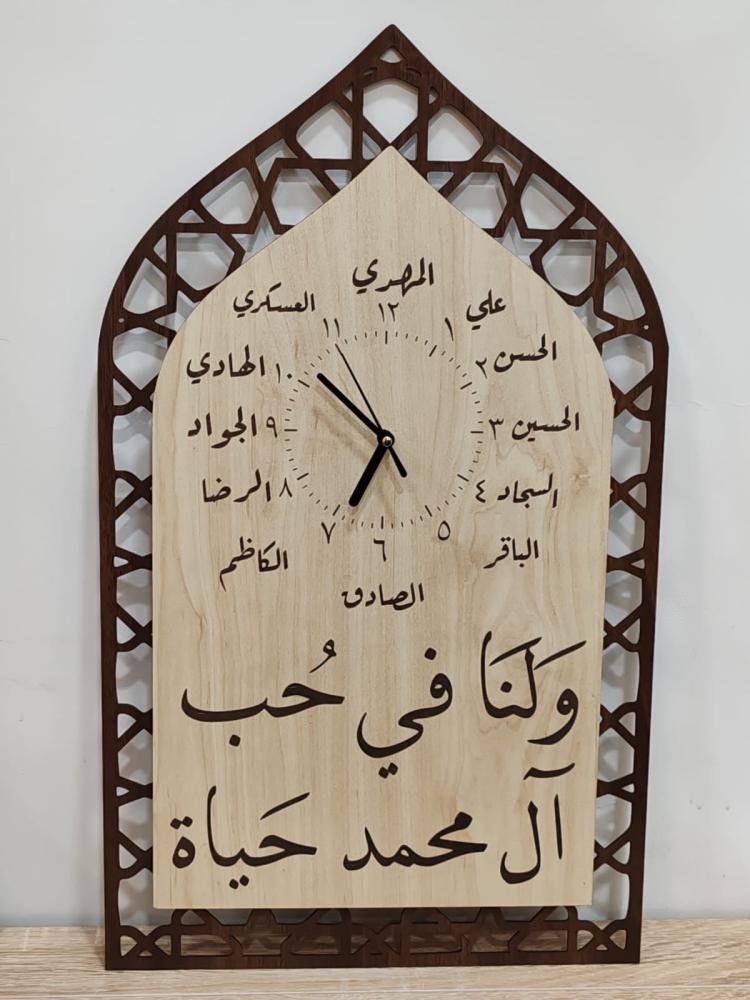 المهدي
١٢
العسكري ١١
١ علي
الهادي ١٠
٢ الحسن
الجواد ٩
٣ الحسين
الرضا ٨
٤ السجاد
الكاظم ٧
٥ الباقر
٦
الصادق
وَلَنَا في حُب
آل محمد حَياة